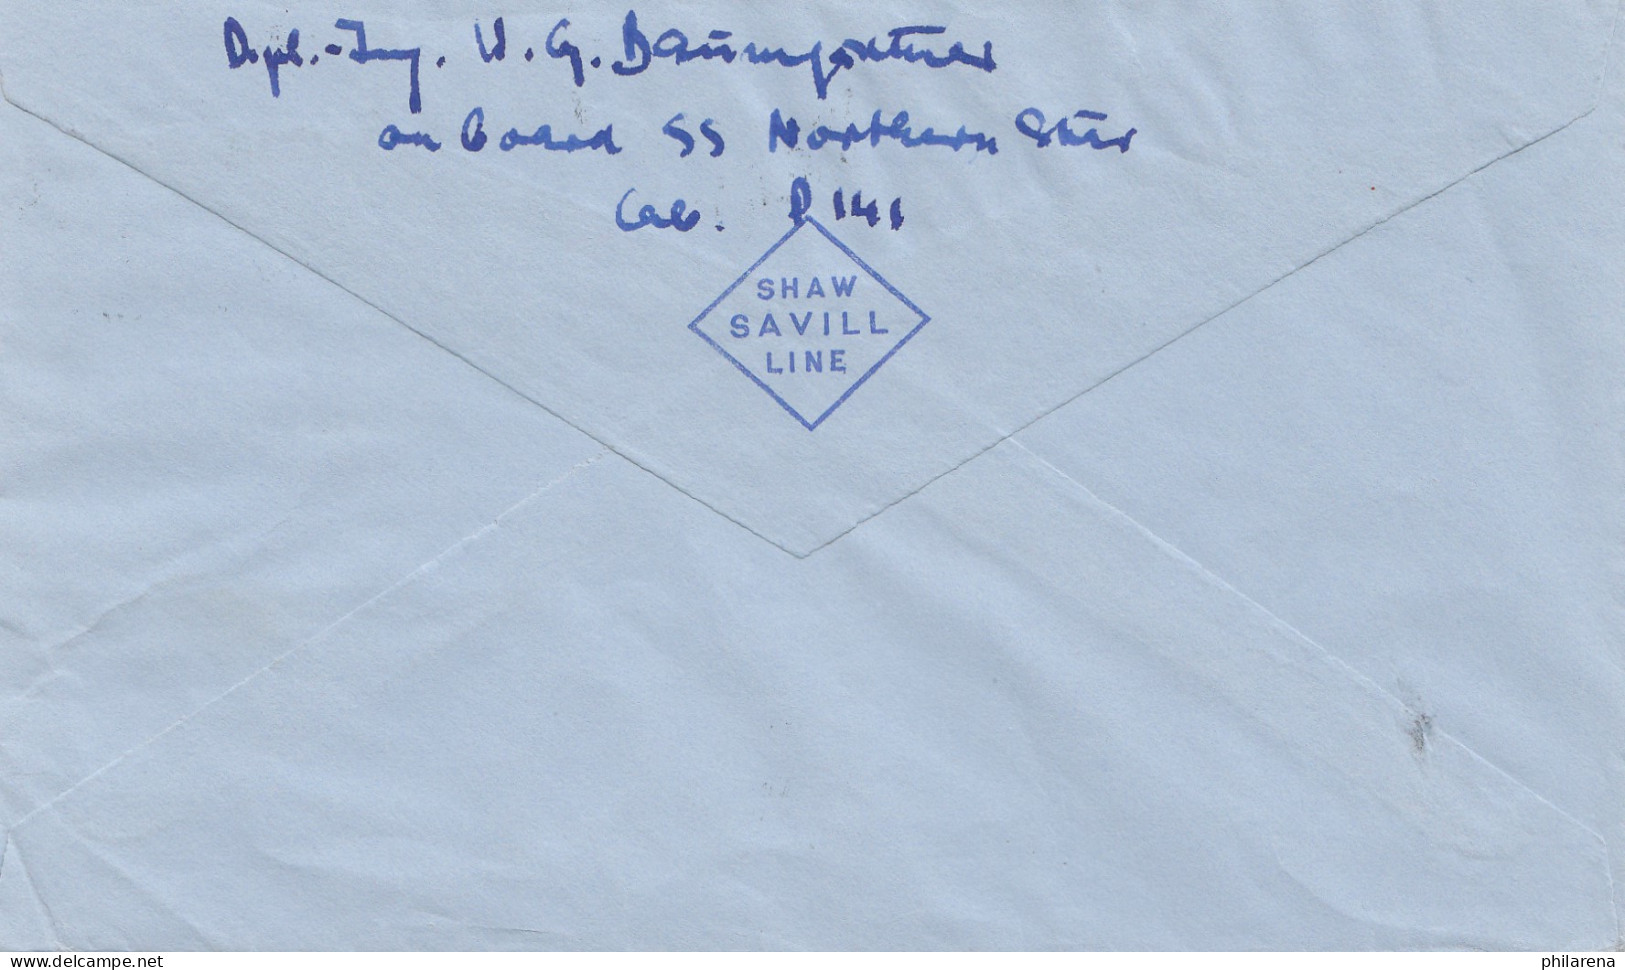 Dipl.-Ing. W. G. Baumgartner
on board SS Northern Star
Cab. P 141
SHAW
SAVILL
LINE
www.delcampe.net
philarena